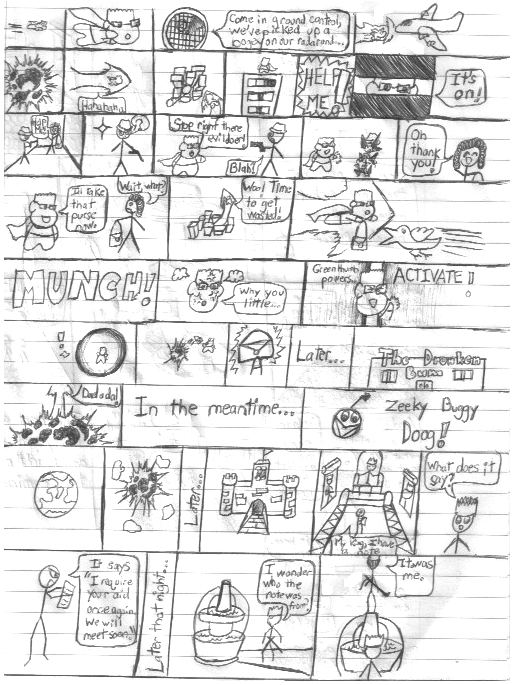 Come in ground control,
we've picked up a
bogey on our radar and...
Hahahaha
HELP
ME!
It's
on!
Stop right there
evildoer!
Blah!
Oh
thank
you!
I'll take
that
purse
now.
Wait, what?
Woo! Time
to get
wasted!
MUNCH!
Why you
little...
Green thumb
powers...
ACTIVATE!
!
Later...
The Drunken
Dadada!
In the meantime...
Zeeky Buggy
Doog!
Later...
My King, I have
a note
What does it
say?
It says
"I require
your aid
once again.
We will
meet soon."
Later that night...
I wonder
who the
note was
from?
It was
me.